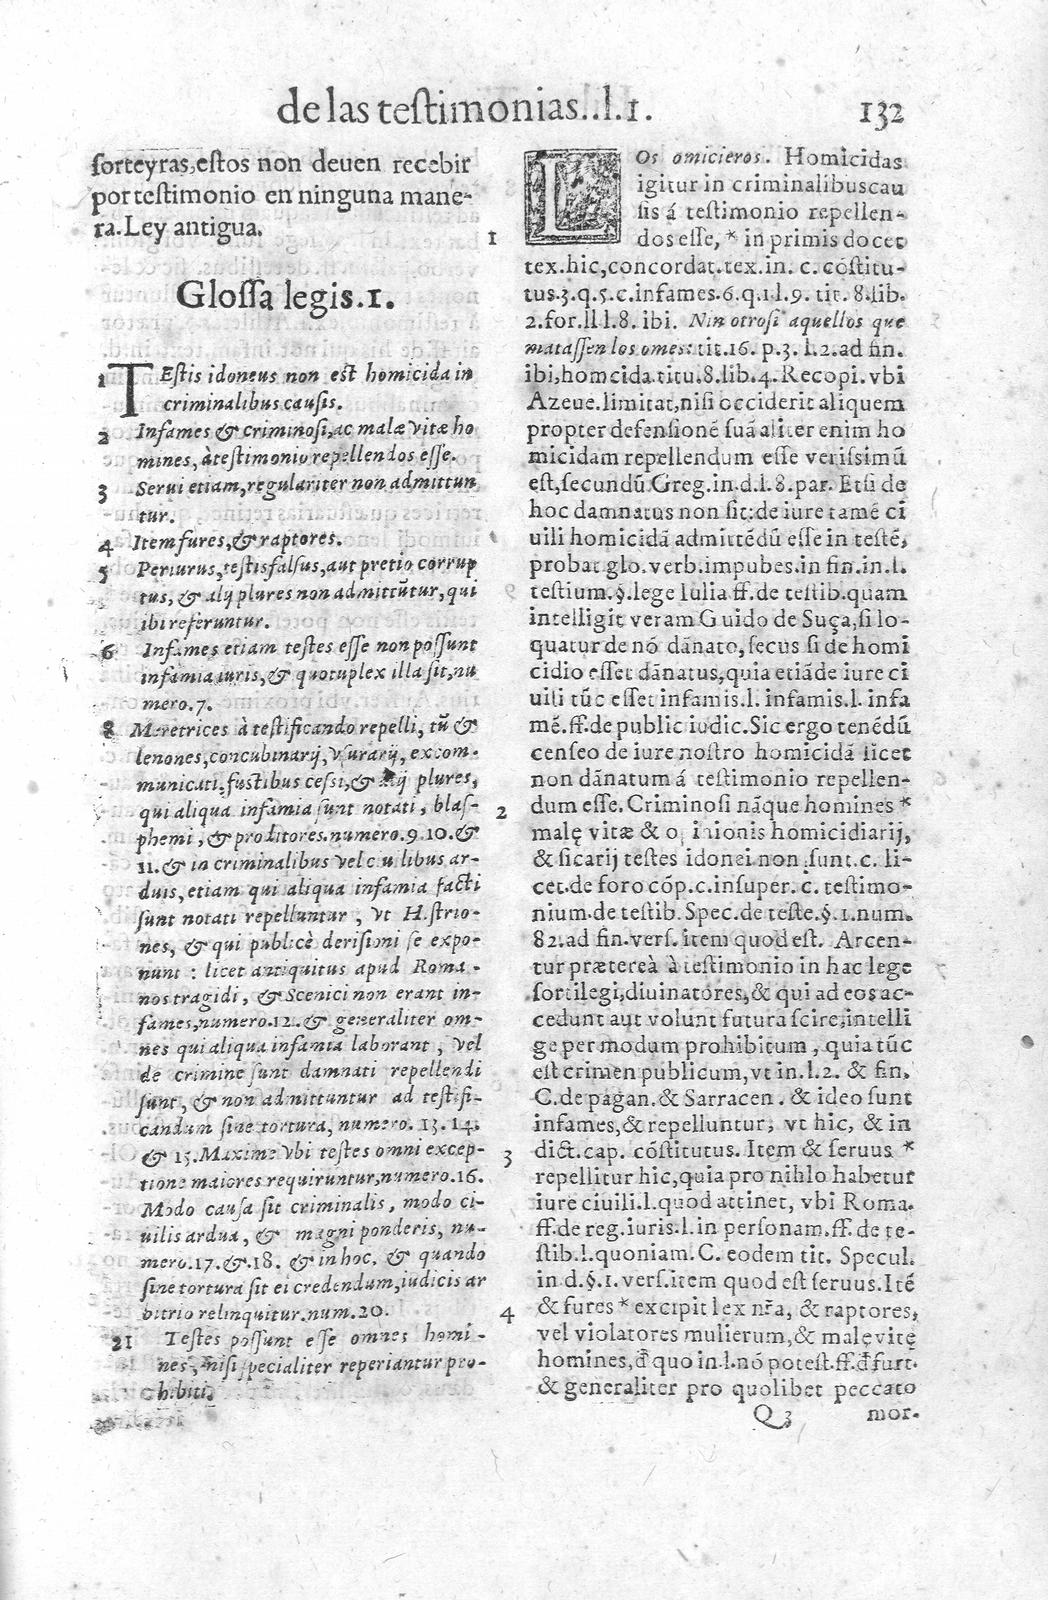 de las testimonias..l.1.
132
sorteyras,estos non deuen recebir
por testimonio en ninguna mane-
ra.Ley antigua.
Glossa legis.1.
1 TEstis idoneus non est homicida in
criminalibus causis.
2 Infames & criminosi,ac malæ vitæ ho
mines, à testimonio repellendos esse.
3 Serui etiam,regulariter non admittun
tur.
4 Item fures,& raptores.
5 Periurus,testis falsus,aut pretio corrup
tus, & alij plures non admittūtur, qui
ibi referuntur.
6 Infames etiam testes esse non possunt
infamia iuris,& quotuplex illa sit,nu
mero.7.
8 Meretrices à testificando repelli, tū &
lenones,concubinarij, vsurarij, excom-
municati,fustibus cessi,& alij plures,
qui aliqua infamia sunt notati, blas-
phemi, & proditores.numero.9.10.&
11.& in criminalibus vel ciuilibus ar-
duis,etiam qui aliqua infamia facti
sunt notati repelluntur, vt Histrio-
nes, & qui publicè derisioni se expo-
nunt: licet antiquitus apud Roma-
nos tragidi, & Scenici non erant in-
fames,numero.12.& generaliter om-
nes qui aliqua infamia laborant, vel
de crimine sunt damnati repellendi
sunt, & non admittuntur ad testifi-
candum sine tortura, numero.13.14.
& 15.Maxime vbi testes omni excep-
tione maiores requiruntur,numero.16.
Modo causa sit criminalis, modo ci-
uilis ardua, & magni ponderis, nu-
mero.17.&.18. & in hoc, & quando
sine tortura sit ei credendum,iudicis ar
bitrio relinquitur.num.20.
21 Testes possunt esse omnes homi-
nes, nisi specialiter reperiantur pro-
hibiti.
LOs omicieros. Homicidas
igitur in criminalibus cau
sis á testimonio repellen-
1 dos esse, * in primis docet
tex.hic,concordat.tex.in. c. cōstitu-
tus.3.q.5.c.infames.6.q.1.l.9. tit. 8.lib.
2.for.ll l.8. ibi. Nin otrosi aquellos que
matassen los omes: tit.16. p.3. l.2.ad fin.
ibi,homcida.titu.8.lib.4.Recopi.vbi
Azeue.limitat,nisi occiderit aliquem
propter defensionē suā aliter enim ho
micidam repellendum esse verissimū
est,secundū Greg.in.d.l.8.par. Etsi de
hoc damnatus non sit:de iure tamē ci
uili homicidā admittēdū esse in testē,
probat glo.verb.impubes.in fin.in.l.
testium.§.lege Iulia.ff.de testib.quam
intelligit veram Guido de Suça,si lo-
quatur de nō dānato, secus si de homi
cidio esset dānatus,quia etiāde iure ci
uili tūc esset infamis.l. infamis.l. infa
mē.ff.de public iudic.Sic ergo tenēdū
censeo de iure nostro homicidā licet
non dānatum á testimonio repellen-
dum esse. Criminosi nāque homines *
2 malę vitæ & opinionis homicidiarij,
& sicarij testes idonei non sunt.c. li-
cet.de foro cōp.c.insuper. c. testimo-
nium.de testib. Spec.de teste.§.1.num.
82.ad fin.vers. item quod est. Arcen-
tur prætereà à testimonio in hac lege
sortilegi,diuinatores,& qui ad eos ac-
cedunt aut volunt futura scire,intelli
ge per modum prohibitum, quia tūc
est crimen publicum,vt in.l.2. & fin.
C.de pagan.& Sarracen. & ideo sunt
infames,& repelluntur, vt hic, & in
dict.cap. cōstitutus. Item & seruus *
3 repellitur hic,quia pro nihlo habetur
iure ciuili.l.quod attinet, vbi Roma.
ff.de reg.iuris.l.in personam.ff. de te-
stib.l.quoniam. C. eodem tit. Specul.
in d.§.1. vers.item quod est seruus.Itē
4 & fures * excipit lex nr̄a, & raptores,
vel violatores mulierum,& malę vitę
homines,d̄ quo in.l.nō potest.ff.d̄ furt.
& generaliter pro quolibet peccato
Q3
mor.